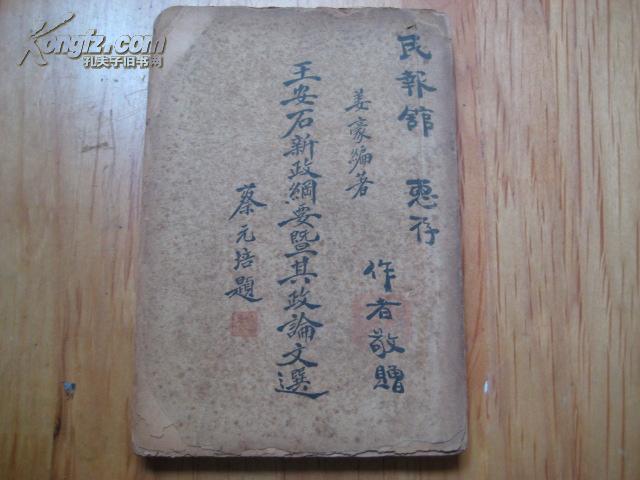 民報館 惠存
作者敬贈
姜豪編著
王安石新政綱要暨其政論文選
蔡元培題
Kongfz.com
孔夫子旧书网